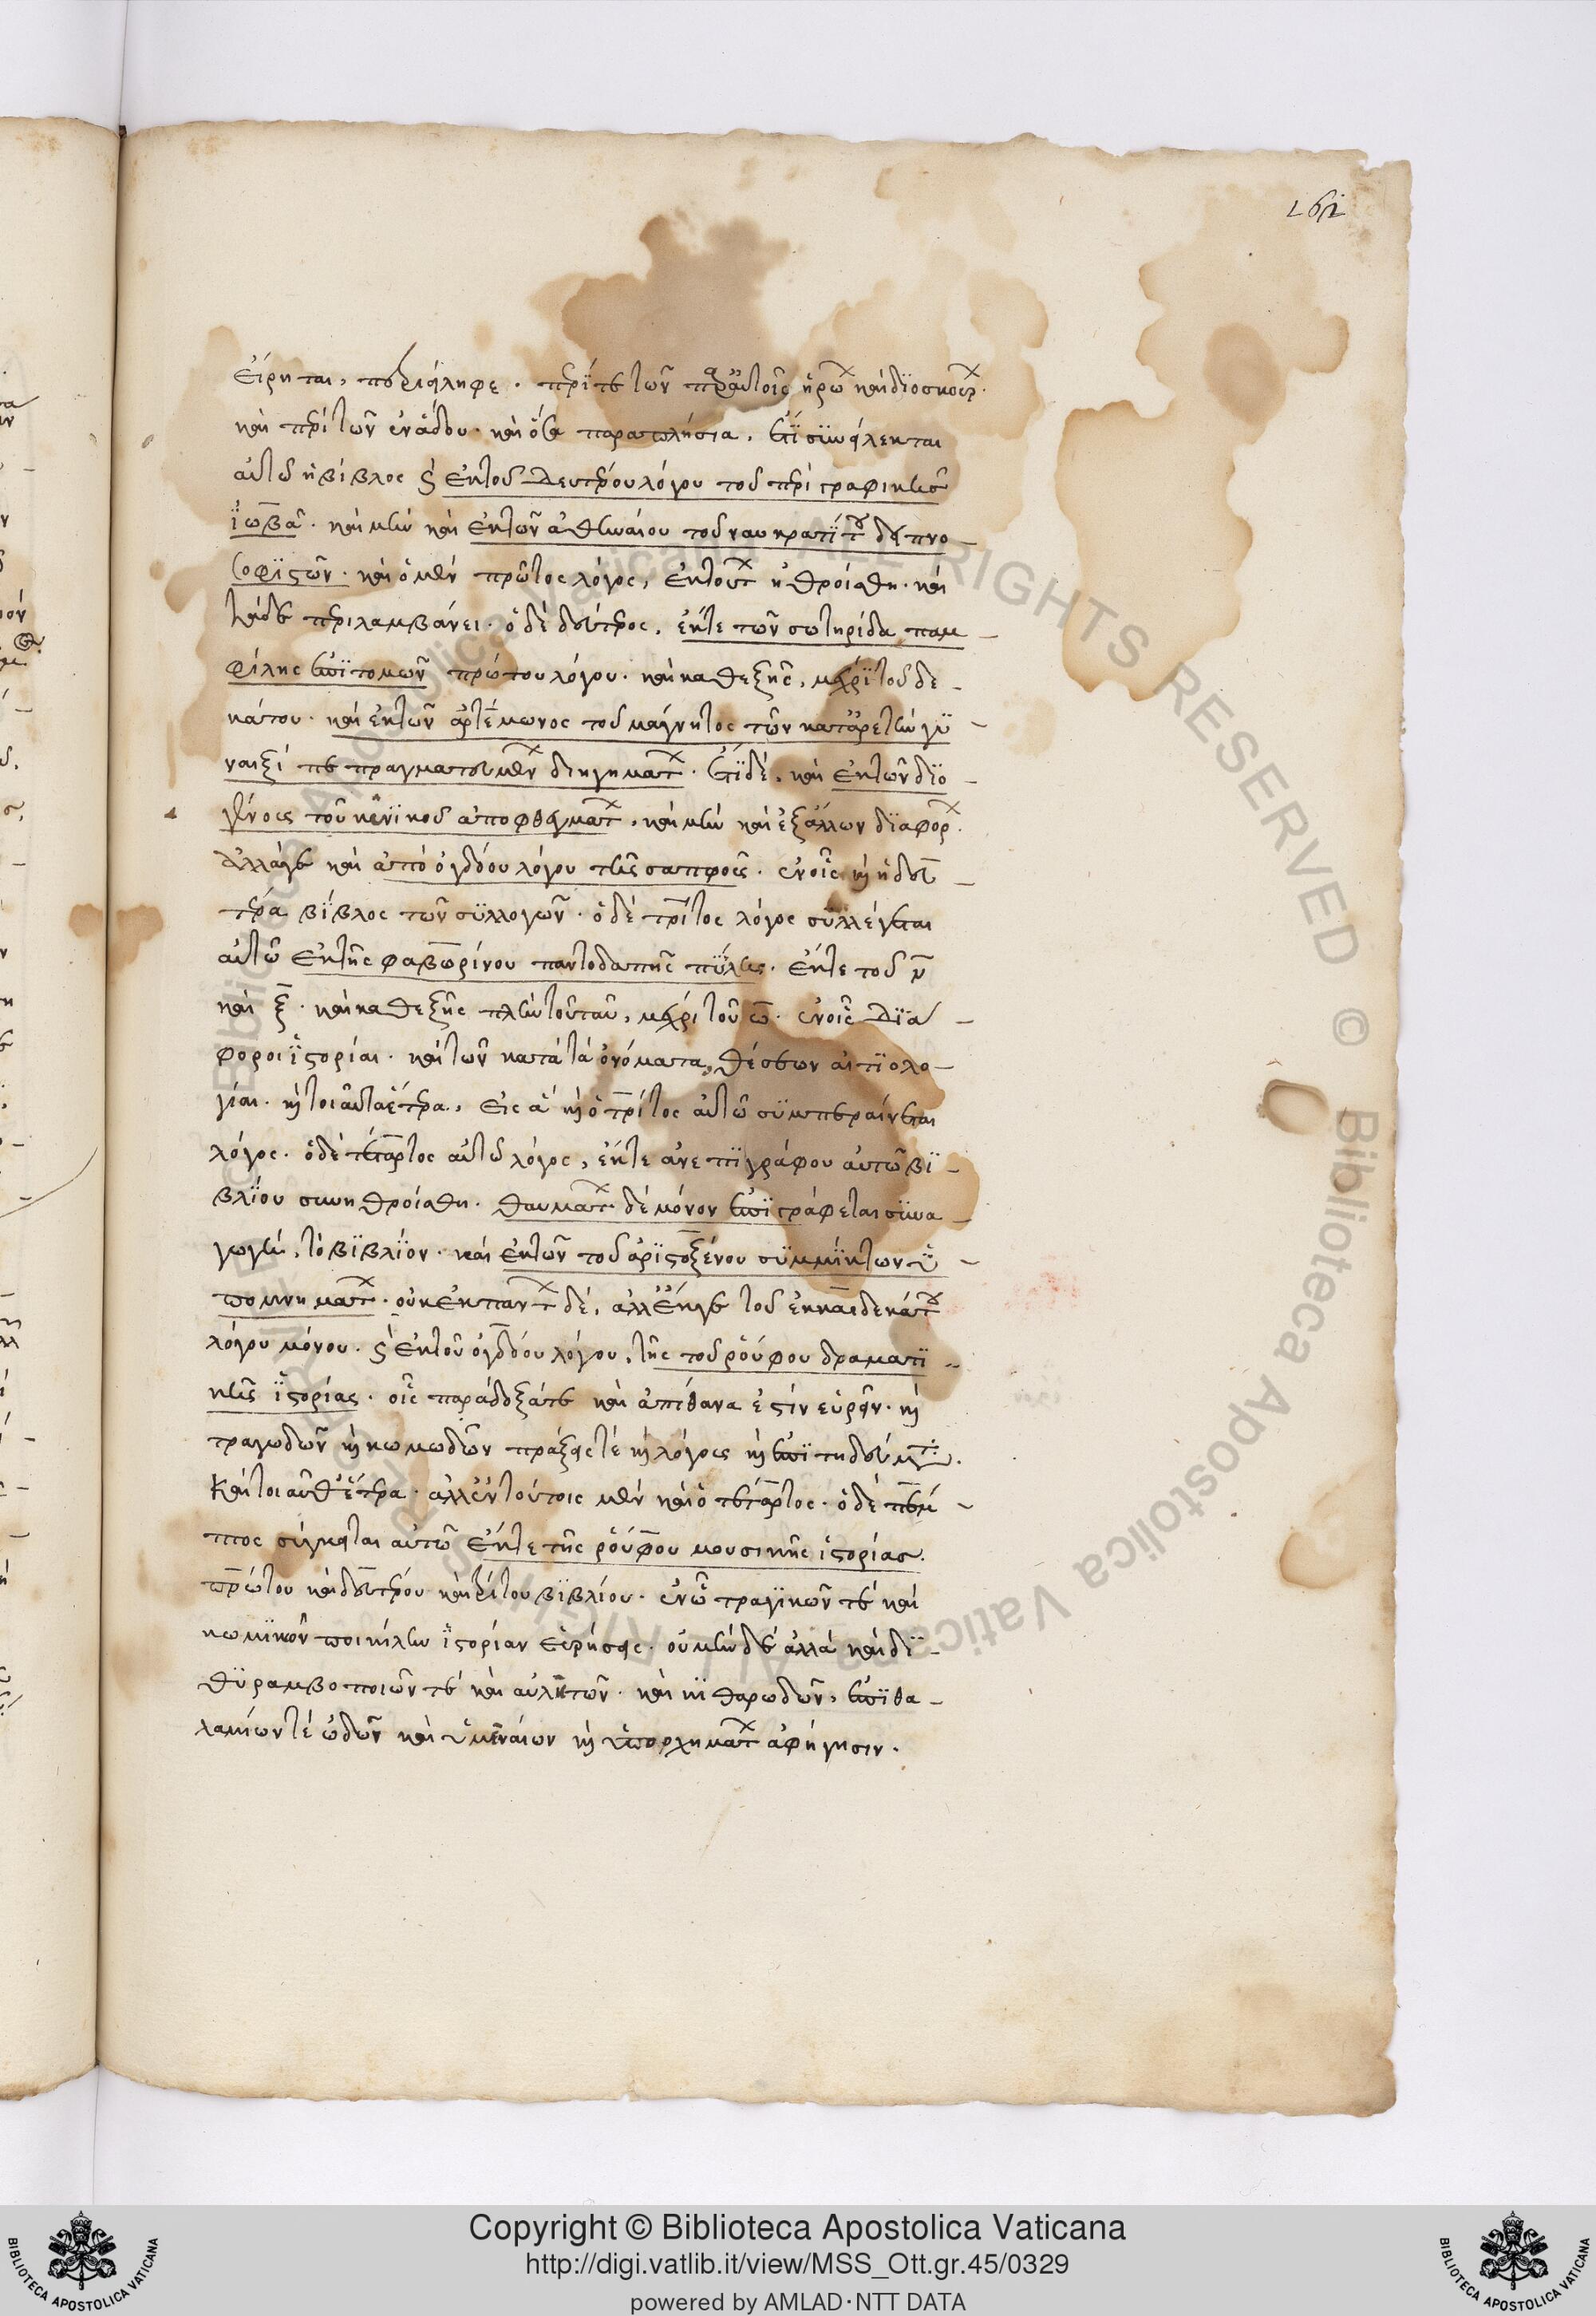 161
εἴρηται, περιείληφε. περί τε τῶν παρ' αὐτοῖς ἡρώων καὶ διοσκούρων.
καὶ περὶ τῶν ἐν ἅδου. καὶ ὅσα παραπλήσια. ἔτι συνείλεκται
αὐτῷ ἡ βίβλος καὶ ἐκ τοῦ δευτέρου λόγου τοῦ περὶ γραφικῆς
ἰώβα. καὶ μὴν καὶ ἐκ τῶν ἀθηναίου τοῦ ναυκρατίτου δειπνο-
σοφιστῶν. καὶ ὁ μὲν πρῶτος λόγος, ἐκ τούτων ἠθροίσθη. καὶ
τάδε περιλαμβάνει. ὁ δὲ δεύτερος, ἔκ τε τῶν σωτηρίδα παμ-
φίλης ἐπιτομῶν πρώτου λόγου. καὶ καθεξῆς, μέχρι τοῦ δε-
κάτου. καὶ ἐκ τῶν ἀρτέμωνος τοῦ μάγνητος τῶν κατ' ἀρετὴν γυ-
ναιξί πεπραγματευμένων διηγημάτων. ἔτι δέ, καὶ ἐκ τῶν διο-
γένους τοῦ κυνικοῦ ἀποφθεγμάτων, καὶ μὴν καὶ ἐξ ἄλλων διαφόρων.
ἀλλά γε καὶ ἀπὸ ὀγδόου λόγου τῆς σαπφοῦς. ἐν οἷς καὶ ἡ δευ-
τέρα βίβλος τῶν συλλογῶν. ὁ δὲ τρίτος λόγος συλλέγεται
αὐτῷ ἐκ τῆς φαβωρίνου παντοδαπῆς ὕλης. ἔκ τε τοῦ ν
καὶ ξ. καὶ καθεξῆς πλὴν τοῦ ταῦ, μέχρι τοῦ ω. ἐν οἷς διά-
φοροι ἱστορίαι. καὶ τῶν κατὰ τὰ ὀνόματα θέσεων αἰτιολο-
γίαι. καὶ τοιαῦτα ἕτερα, εἰς ἃ καὶ ὁ τρίτος αὐτῷ συμπεραίνεται
λόγος. ὁ δὲ τέταρτος αὐτῷ λόγος, ἔκ τε ἀνεπιγράφου αὐτῷ βι-
βλίου συνηθροίσθη. θαυμάτων δὲ μόνον ἐπιγράφεται συνα-
γωγή, τὸ βιβλίον. καὶ ἐκ τῶν τοῦ ἀριστοξένου συμμίκτων ὑ-
πομνημάτων. οὐκ ἐκ πάντων δέ, ἀλλ' ἔκ γε τοῦ ἑκκαιδεκάτου
λόγου μόνου. καὶ ἐκ τοῦ ὀγδόου λόγου, τῆς τοῦ ῥούφου δραματι-
κῆς ἱστορίας. οἷς παράδοξά τε καὶ ἀπίθανα ἐστὶν εὑρεῖν. καὶ
τραγωδῶν καὶ κωμωδῶν πράξεις τέ καὶ λόγους καὶ ἐπιτηδεύματα.
καὶ τοιαῦθ' ἕτερα. ἀλλ' ἐν τούτοις μὲν καὶ ὁ τέταρτος. ὁ δὲ πέμ-
πτος σύγκειται αὐτῷ ἔκ τε τῆς ῥούφου μουσικῆς ἱστορίας.
πρώτου καὶ δευτέρου καὶ τρίτου βιβλίου. ἐν ᾧ τραγικῶν τέ καὶ
κωμικῶν ποικίλην ἱστορίαν εὑρήσεις. οὐ μὴν δέ ἀλλὰ καὶ δι-
θυραμβοποιῶν τέ καὶ αὐλητῶν. καὶ κιθαρωδῶν, ἐπιθα-
λαμίων τέ ᾠδῶν καὶ ὑμεναίων καὶ ὑπορχημάτων ἀφήγησιν.
Copyright © Biblioteca Apostolica Vaticana
http://digi.vatlib.it/view/MSS_Ott.gr.45/0329
powered by AMLAD·NTT DATA